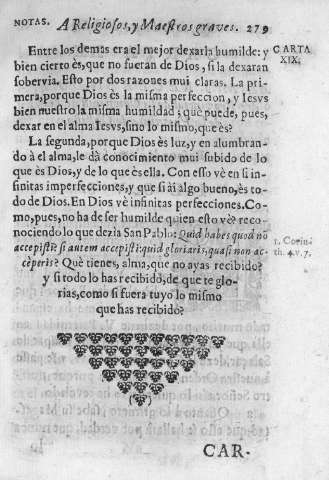 NOTAS. A Religiosos, y Maestros graves. 279
Entre los demas era el mejor dexarla humilde: y
bien cierto ès, que no fueran de Dios, si la dexaran
sobervia. Esto por dos razones mui claras. La pri-
mera, porque Dios ès la misma perfeccion, y Iesvs
bien nuestro la misma humildad; què puede, pues,
dexar en el alma Iesvs, sino lo mismo, que ès?
La segunda, porque Dios ès luz, y en alumbran-
do à el alma, le dà conocimiento mui subido de lo
que ès Dios, y de lo que ès ella. Con esso vè en si in-
finitas imperfecciones, y que si ài algo bueno, ès to-
do de Dios. En Dios vè infinitas perfecciones. Co-
mo, pues, no ha de ser humilde quien esto vè? reco-
nociendo lo que dezia San Pablo: Quid habes quod no
accepisti? si autem accepisti: quid gloriaris, quasi non ac-
cèperis? Què tienes, alma, que no ayas recibido?
y si todo lo has recibido, de que te glo-
rias, como si fuera tuyo lo mismo
que has recibido?
CARTA
XIX.
1. Corin-
th. 4. v. 7.
CAR-